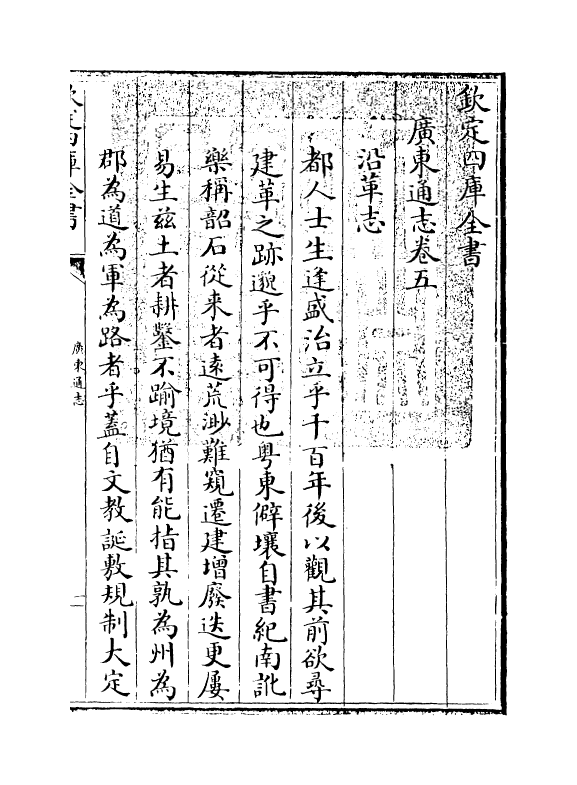 欽定四庫全書
廣東通志卷五
沿革志
都人士生逢盛治立乎千百年後以觀其前欲尋
建革之跡邈乎不可得也粤東僻壤自書紀南訛
樂稱韶石從来者遠荒渺難窺遷建增廢迭更屢
易生兹土者耕鑿不踰境猶有能指其孰為州為
郡為道為軍為路者乎蓋自文教誕敷規制大定
欽定四庫全書
廣東通志